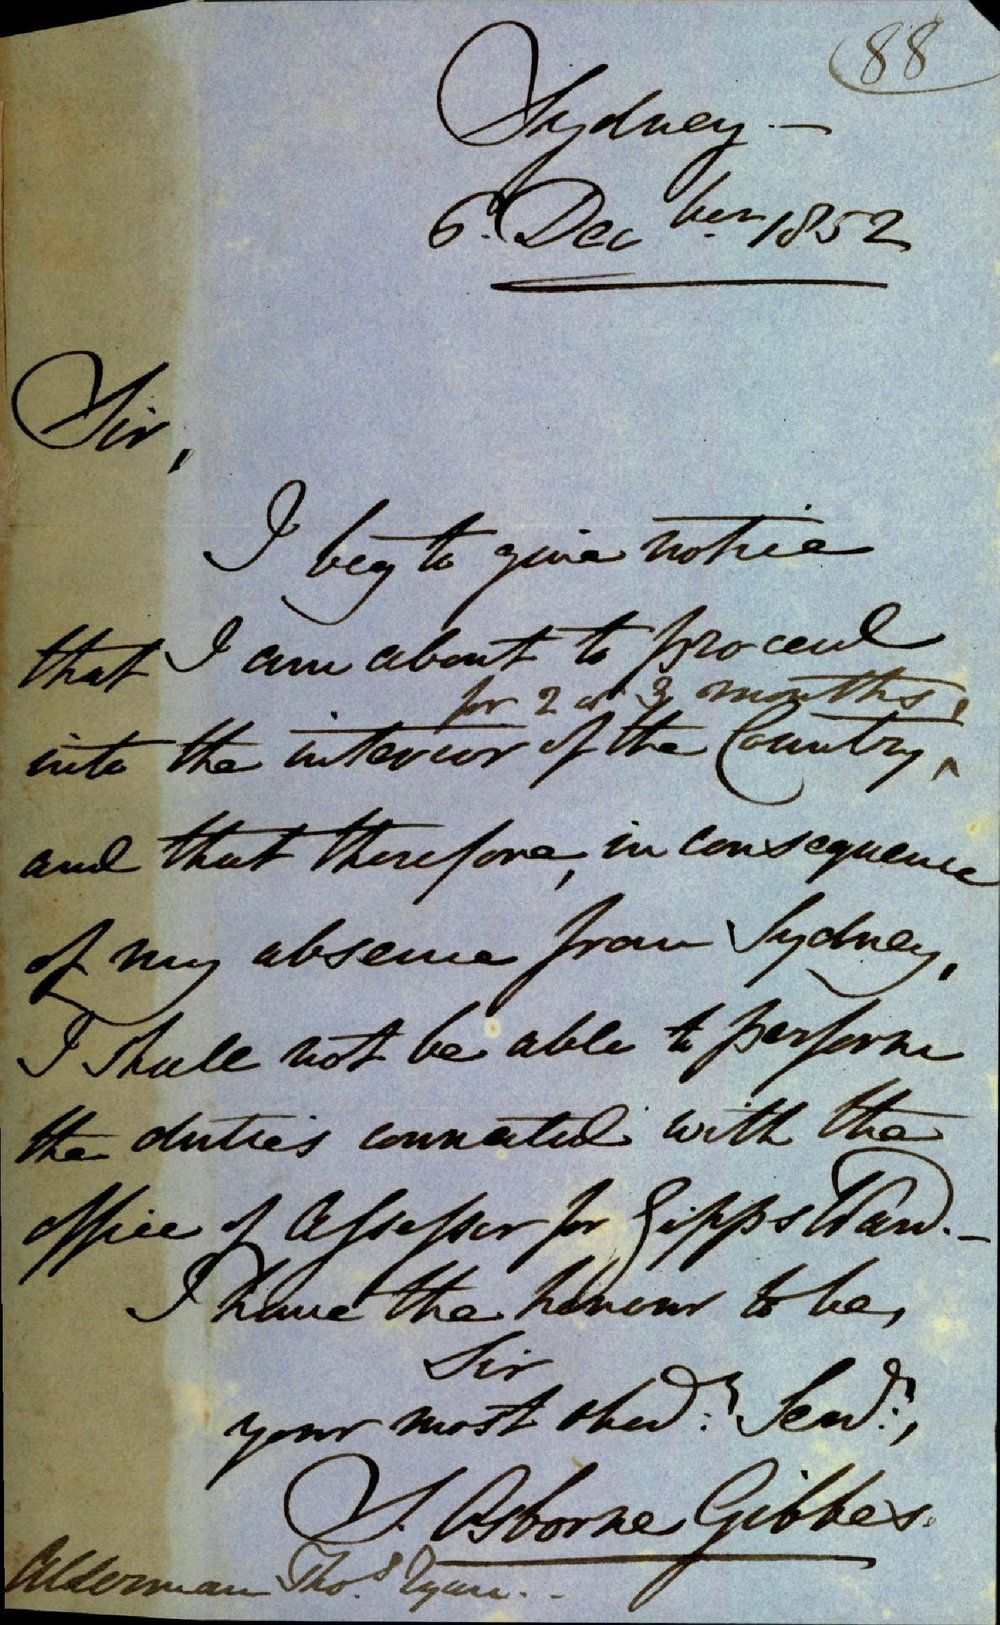 88
Sydney —
6th Decber 1852
Sir,
I beg to give notice
that I am about to proceed
for 2 or 3 months,
into the interior of the Country,^
and that therefore, in consequence
of my absence from Sydney,
I shall not be able to perform
the duties connected with the
office of Assessor for Gipps Ward. —
I have the honour to be,
Sir
your most obedt. Servt.,
S. Osborne Gibbes.
Alderman Thos. Ryan. -